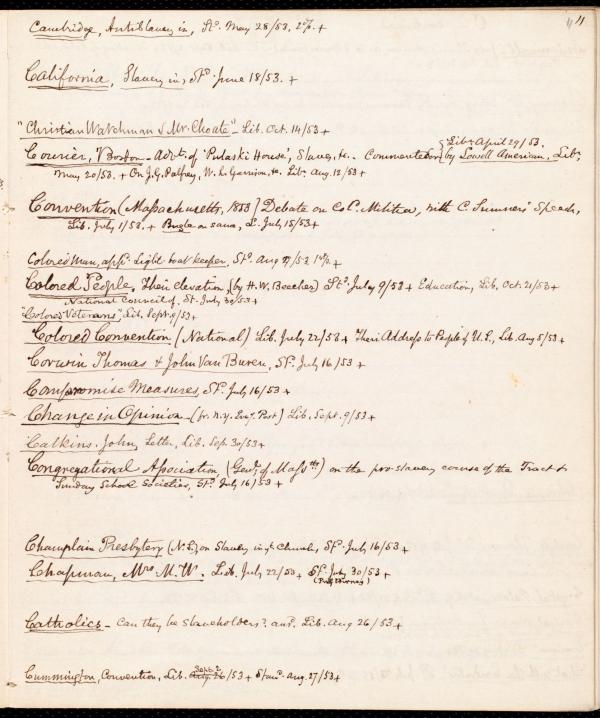 11
Cambridge, Antislavery in, Sd. May 28/53.
California, Slavery in, Sd. June 18/53. +
"Christian Watchman & Mr. Choate" - Lib. Oct. 14/53 +
Courier, Boston - Advt. of 'Pulaski House', Slaves, &c. - Commented on {Lib. April 29/53.
by Lowell American, Lib.
May 20/53. + On J.G. Palfrey, W. L. Garrison, &c. Lib. Aug. 12/53 +
Convention (Massachusetts, 1853) Debate on Col. Militia, with C. Sumner's Speech,
Lib. July 1/53. + Bugle on same, L. July 15/53 +
Colored Man, app. Light boat keeper, Sd. Aug 27/53
Colored People, Their elevation (by H. W. Beecher) Sd. July 9/53 + Education, Lib. Oct. 21/53 +
National Council of, St. July 30/53 +
"Colored Veterans", Lib. Sept. 9/53 +
Colored Convention (National) Lib. July 22/53 + Their Address to People of U.S., Lib. Aug 5/53 +
Corwin Thomas & John Van Buren, Sd. July 16/53 +
Compromise Measures, Sd. July 16/53 +
Change in Opinion - (fr. N.Y. Evg. Post) Lib. Sept. 9/53 +
Calkins, John, Letter, Lib. Sep. 30/53 +
Congregational Association, (Genl. of Massts.) on the pro-slavery course of the Tract &
Sunday School Societies, Sd. July 16/53 +
Champlain Presbytery (N.S.) on Slavery in ye Church, Sd. July 16/53 +
Chapman, Mrs M. W. Lib. July 22/53 + Sd. July 30/53 +
Catholics - Can they be slaveholders? ansd. Lib. Aug 26/53 +
Cummington, Convention, Lib. Sept. 2/53 + Stand. Aug. 27/53 +